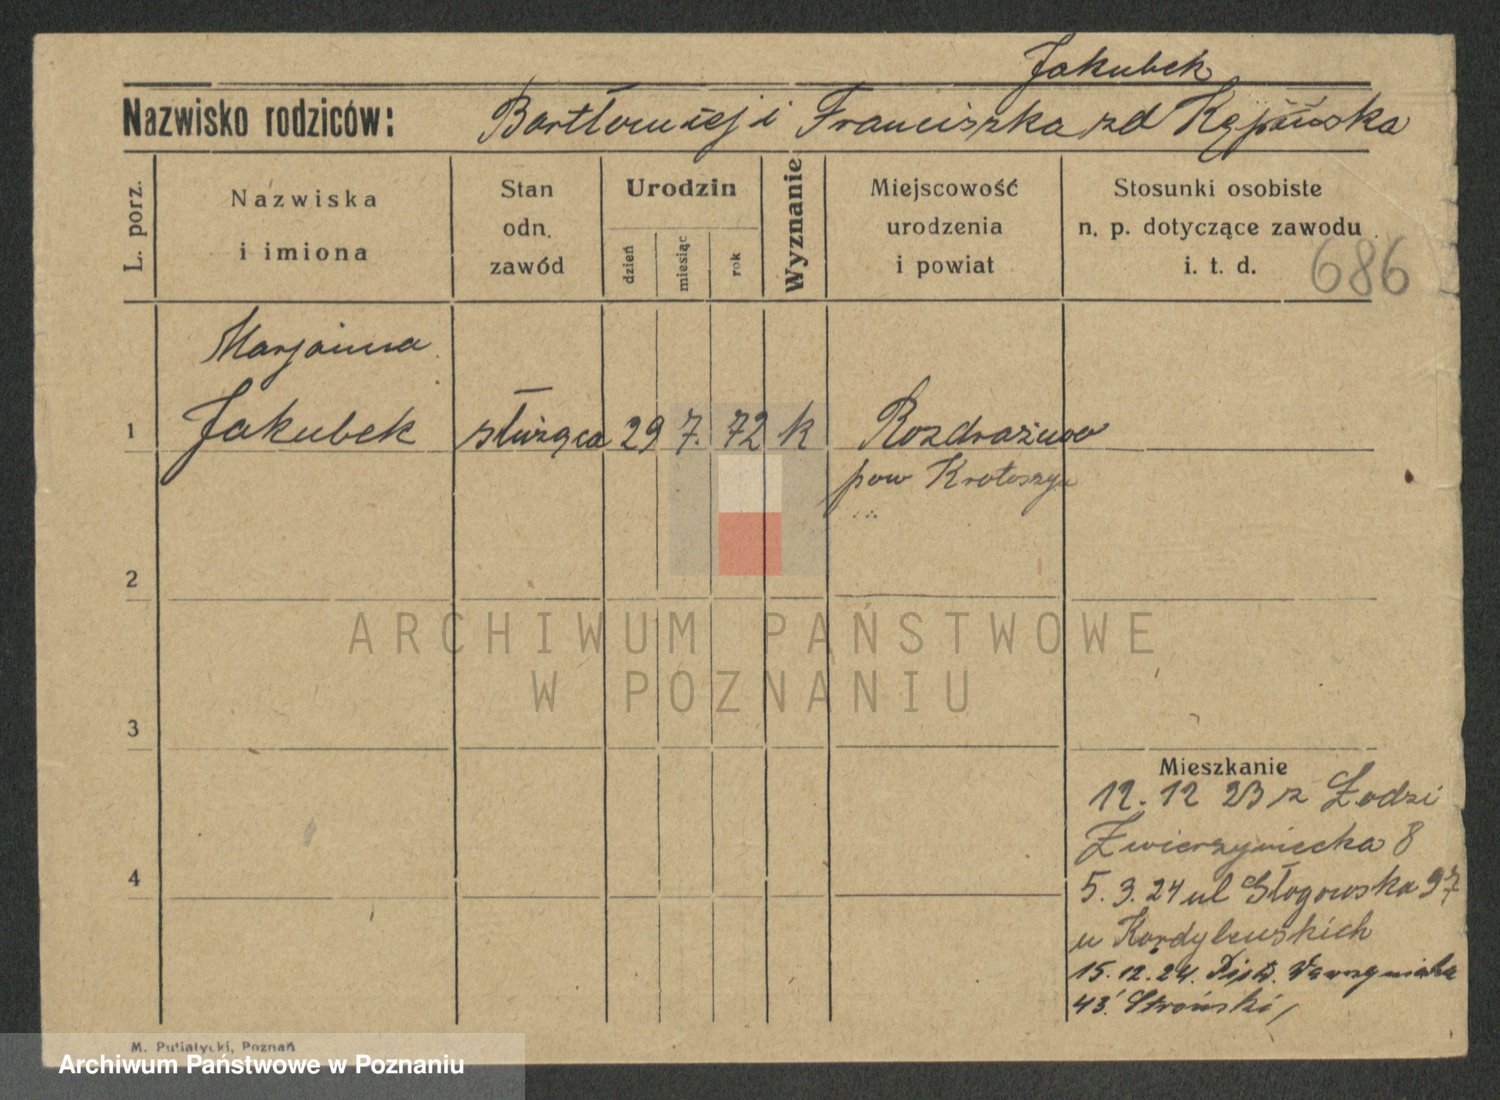 Jakubek
Nazwisko rodziców: Bartłomiej i Franciszka zd Kępińska
L. porz.
Nazwiska
i imiona
Stan
odn.
zawód
Urodzin
dzień
miesiąc
rok
Wyznanie
Miejscowość
urodzenia
i powiat
Stosunki osobiste
n. p. dotyczące zawodu
i. t. d.
686
Marjanna
1 Jakubek służąca 29 7. 72 k Rozdrażewo
pow Krotoszyn
2
ARCHIWUM PAŃSTWOWE
W POZNANIU
3
Mieszkanie
12. 12 23 z Łodzi
Zwierzyniecka 8
5. 3. 24 ul Głogowska 97
u Kordylewskich
15. 12. 24.
43 Stroński
4
M. Putiatycki, Poznań
Archiwum Państwowe w Poznaniu